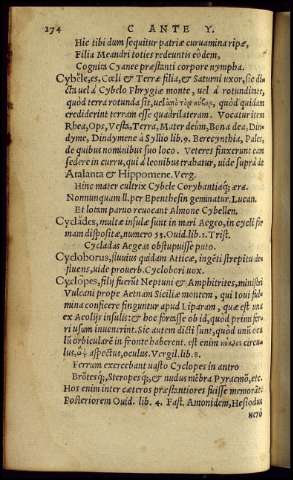 274 C ANTE Y.
Hic tibi dum sequitur patriæ curuamina ripæ,
Filia Meandri toties redeuntis eòdem,
Cognita Cyane præstanti corpore nympha.
Cybĕle, es, Cœli & Terræ filia, & Saturni vxor, sic di
cta vel à Cybelo Phrygiæ monte, vel à rotunditate,
quòd terra rotunda sit, vel quòd quidam
crediderint terram esse quadrilateram. Vocatur item
Rhea, Ops, Vesta, Terra, Mater deûm, Bona dea, Din-
dyme, Dindymene à Syllio lib. 9. Berecynthia, Pales,
de quibus nominibus suo loco. Veteres finxerunt eam
sedere in curru, qui à leonibus trahatur, vide suprà de
Atalanta & Hippomene. Verg.
Hinc mater cultrix Cybele Corybantiaq; æra.
Nonnunquam ll. per Epenthesin geminatur. Lucan.
Et lotam paruo reuocant Almone Cybellen.
Cyclădes, multæ insulæ sunt in mari Aegeo, in cycli for
mam dispositæ, numero 53. Ouid. lib. 1. Trist.
Cycladas Aegeas obstupuisse puto.
Cycloborus, fluuius quidam Atticæ, ingēti strepitu de-
fluens, vide prouerb. Cyclobori vox.
Cyclopes, filij fuerūt Neptuni & Amphitrites, ministri
Vulcani prope Aetnam Siciliæ montem, qui Ioui ful-
mina conficere finguntur apud Liparam, quæ est vna
ex Aeolijs insulis: & hoc forasse ob id, quòd primi fer-
ri vsum inuenerint. Sic autem dicti sunt, quòd vnū ocu
lū orbicularē in fronte haberent. est enim κύκλος circu-
lus, ὤψ aspectus, oculus. Vergil. lib. 8.
Ferrum exercebant vasto Cyclopes in antro
Brōtesq;, Steropesq;, & nudus mēbra Pyracmō, etc.
Hos enim inter cæteros præstantiores fuisse memorāt.
Posteriorem Ouid. lib. 4. Fast. Amonidem, Hesiodus
verò